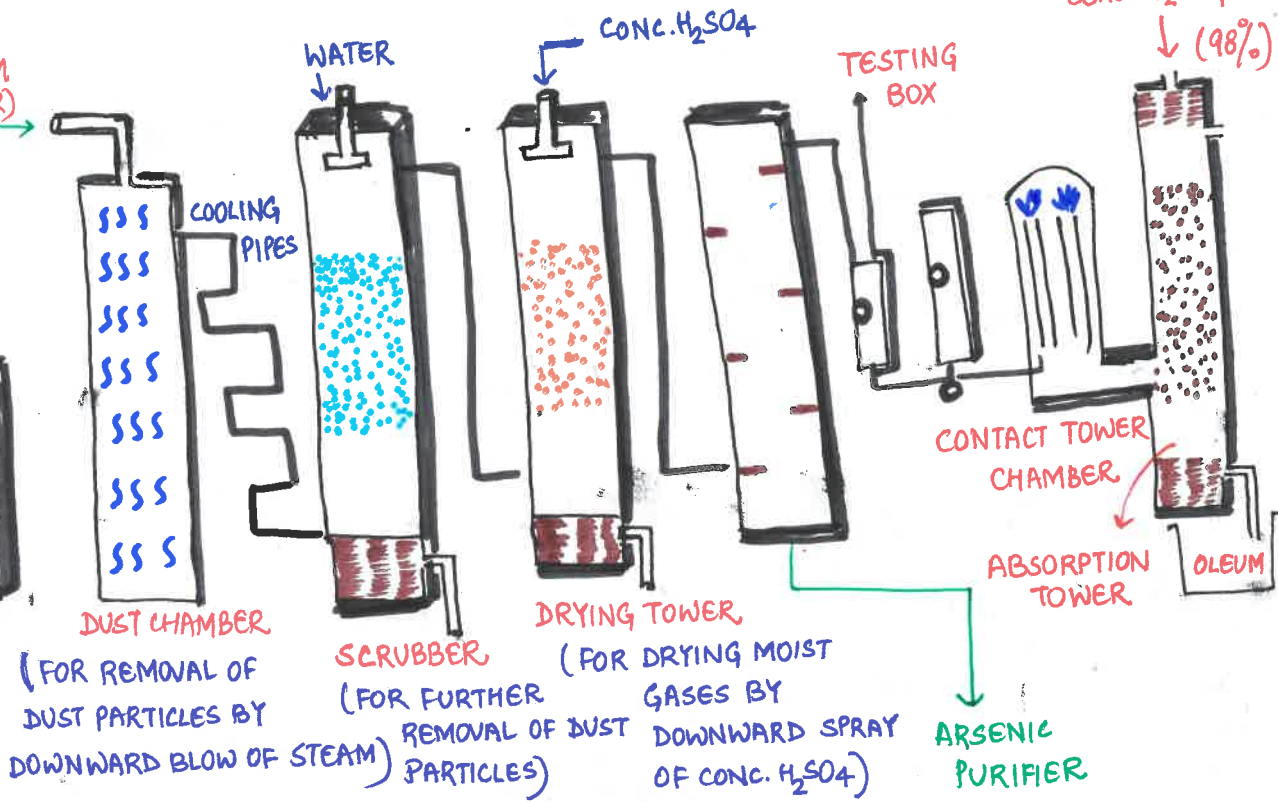 WATER
CONC. H₂SO4
TESTING
BOX
(98%)
COOLING
PIPES
CONTACT TOWER
CHAMBER
ABSORPTION
TOWER
OLEUM
DUST CHAMBER
(FOR REMOVAL OF
DUST PARTICLES BY
DOWNWARD BLOW OF STEAM)
SCRUBBER
(FOR FURTHER
REMOVAL OF DUST
PARTICLES)
DRYING TOWER
(FOR DRYING MOIST
GASES BY
DOWNWARD SPRAY
OF CONC. H₂SO4)
ARSENIC
PURIFIER